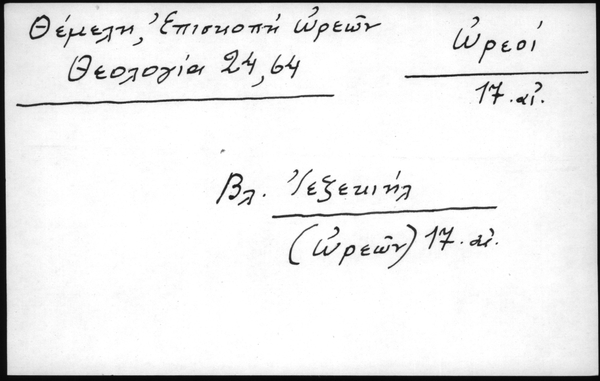 Θέμελη, Ἐπισκοπή Ὠρεῶν
Θεολογία 24, 64
Ὠρεοί
17. αἰ.
Βλ. Ἰεζεκιήλ
(Ὠρεῶν) 17. αἰ.